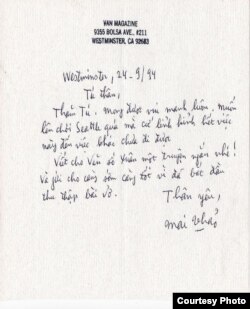 VAN MAGAZINE
9355 BOLSA AVE., #211
WESTMINSTER, CA 92683
Westminster, 24-9/94
Tú thân,
Thăm Tú. Mong được vui mạnh luôn. Muốn
lên chơi Seattle quá mà cứ hết việc
này đến việc khác chưa đi được
Viết cho Văn số Xuân một truyện ngắn nhé!
và gửi cho càng sớm càng tốt vì đã bắt đầu
thu thập bài vở.
Thân yêu,
Mai Thảo
Courtesy Photo